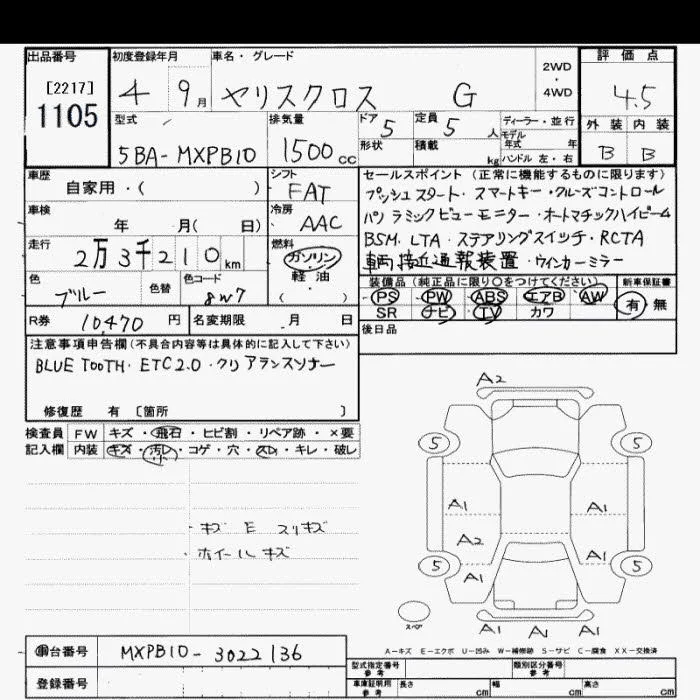 出品番号 初度登録年月 車名・グレード 評価点
[2217] 1105
4 9月 ヤリスクロス G 2WD・4WD 4.5
型式 排気量 ドア 5 定員 5人 ディーラー・並行 外装 内装
モデル年式 年
5BA-MXPB10 1500cc 形状 積載 kg ハンドル 左・右 B B
車歴 シフト セールスポイント (正常に機能するものに限ります)
自家用・( ) FAT プッシュスタート・スマートキー・クルーズコントロール
車検 冷房 パノラミックビューモニター・オートマチックハイビーム
年 月( 日) AAC BSM・LTA・ステアリングスイッチ・RCTA
走行 燃料 車両接近通報装置・ウインカーミラー
2万3千210km ガソリン・軽油・
色 色替 色コード 装備品 (純正品に限り○をつけてください) 新車保証書
ブルー 8W7 PS PW ABS エアB AW 有 無
SR ナビ TV カワ
R券 10470円 名変期限 月 日 後日品
注意事項申告欄(不具合内容等は具体的に記入して下さい)
BLUE TOOTH・ETC2.0・クリアランスソナー
修復歴 有 [箇所 ]
検査員 FW キズ・飛石・ヒビ割・リペア跡・×要
記入欄 内装 キズ・汚レ・コゲ・穴・スレ・キレ・破レ
小
・キズ E スリキズ
・ホイールキズ
A2
5 5
A1 A1
A2 A1
5 A1 5
スペア A1 A1 A1
A-キズ E-エクボ U-凹み W-補修跡 S-サビ C-腐食 XX-交換済
車台番号 MXPB10-3022136
型式指定番号 参考 類別区分番号 参考
登録番号 車庫証明用 参考 長さ cm 幅 cm 高さ cm